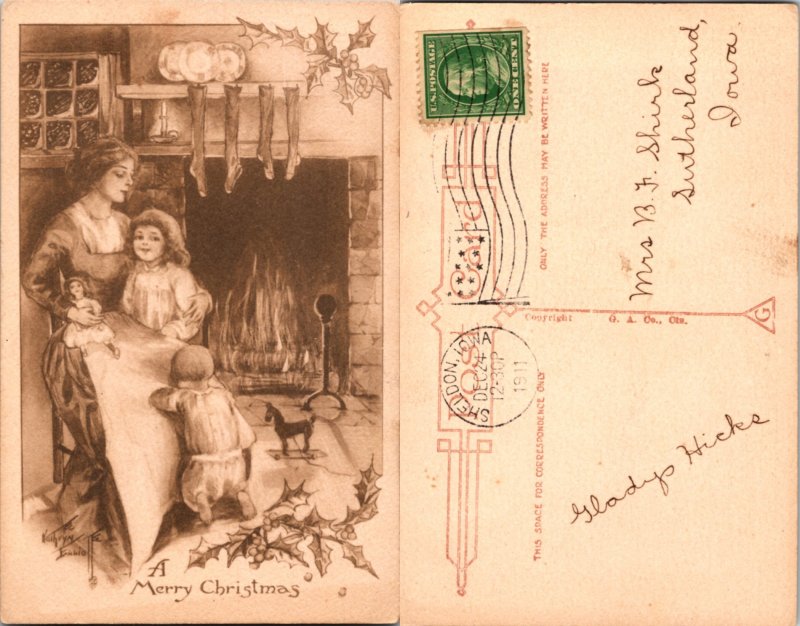 Kathryn
Elliott
A
Merry Christmas
U.S. POSTAGE
ONE CENT
SHELDON, IOWA
DEC 24
12-30P
1911
Post Card
THIS SPACE FOR CORRESPONDENCE ONLY
ONLY THE ADDRESS MAY BE WRITTEN HERE
Copyright G. A. Co., Cts.
G
Mrs B. F. Shirk
Sutherland,
Iowa.
Gladys Hicks